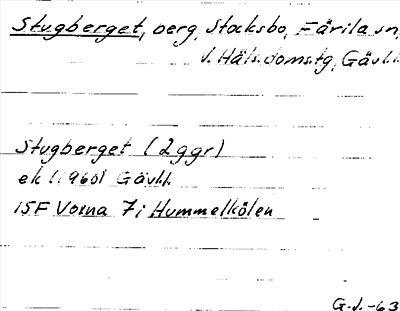 Stugberget, berg, Stocksbo, Färila sn,
V. Häls. domstg, Gävl.l.
Stugberget (2 ggr)
ek (1960) Gävl.l.
15F Voxna 7i Hummelkölen
G.J. -63